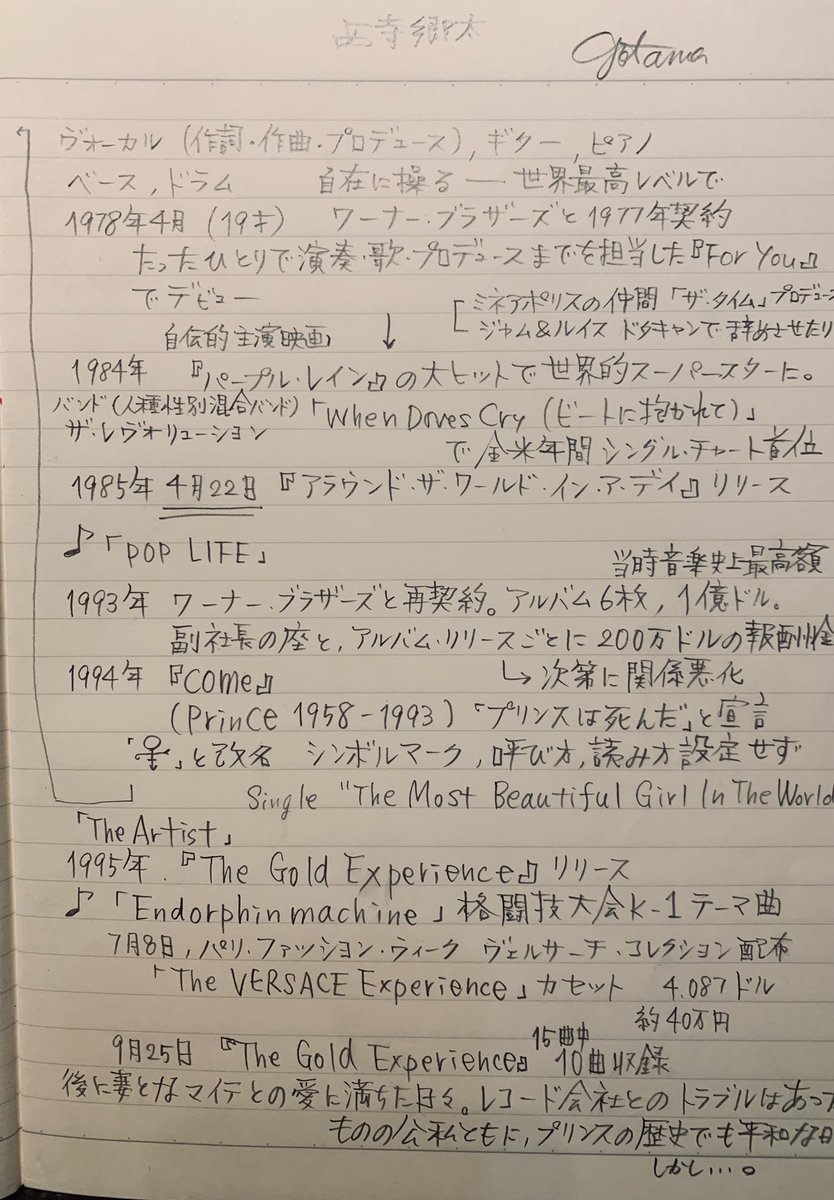 西寺郷太
Gotama
ヴォーカル (作詞・作曲・プロデュース), ギター, ピアノ
ベース, ドラム 自在に操る ― 世界最高レベルで
1978年4月 (19才) ワーナー・ブラザーズと1977年契約
たったひとりで演奏・歌・プロデュースまでを担当した『For You』
でデビュー
ミネアポリスの仲間「ザ・タイム」プロデュー
ジャム&ルイス ドタキャンで辞めさせたり
自伝的主演映画 ↓
1984年 『パープル・レイン』の大ヒットで世界的スーパースターに。
バンド(人種性別混合バンド) 「When Doves Cry (ビートに抱かれて)」
ザ・レヴォリューション
で全米年間シングル・チャート首位
1985年 4月22日 『アラウンド・ザ・ワールド・イン・ア・デイ』リリース
♪「POP LIFE」
当時音楽史上最高額
1993年 ワーナー・ブラザーズと再契約。アルバム6枚, 1億ドル。
副社長の座と, アルバム・リリースごとに200万ドルの報酬金
1994年 『COME』 ↳ 次第に関係悪化
(Prince 1958-1993)「プリンスは死んだ」と宣言
「」と改名 シンボルマーク, 呼び方, 読み方設定せず
Single "The Most Beautiful Girl In The World
「The Artist」
1995年.『The Gold Experience』リリース
♪「Endorphinmachine」格闘技大会K-1テーマ曲
7月8日, パリ・ファッション・ウィーク ヴェルサーチ・コレクション配布
「The VERSACE Experience」カセット 4.087ドル
約40万円
15曲中
9月25日 『The Gold Experience』10曲収録
後に妻となマイテとの愛に満ちた日々。レコード会社とのトラブルはあっ
ものの公私ともに, プリンスの歴史でも平和な日
しかし…。